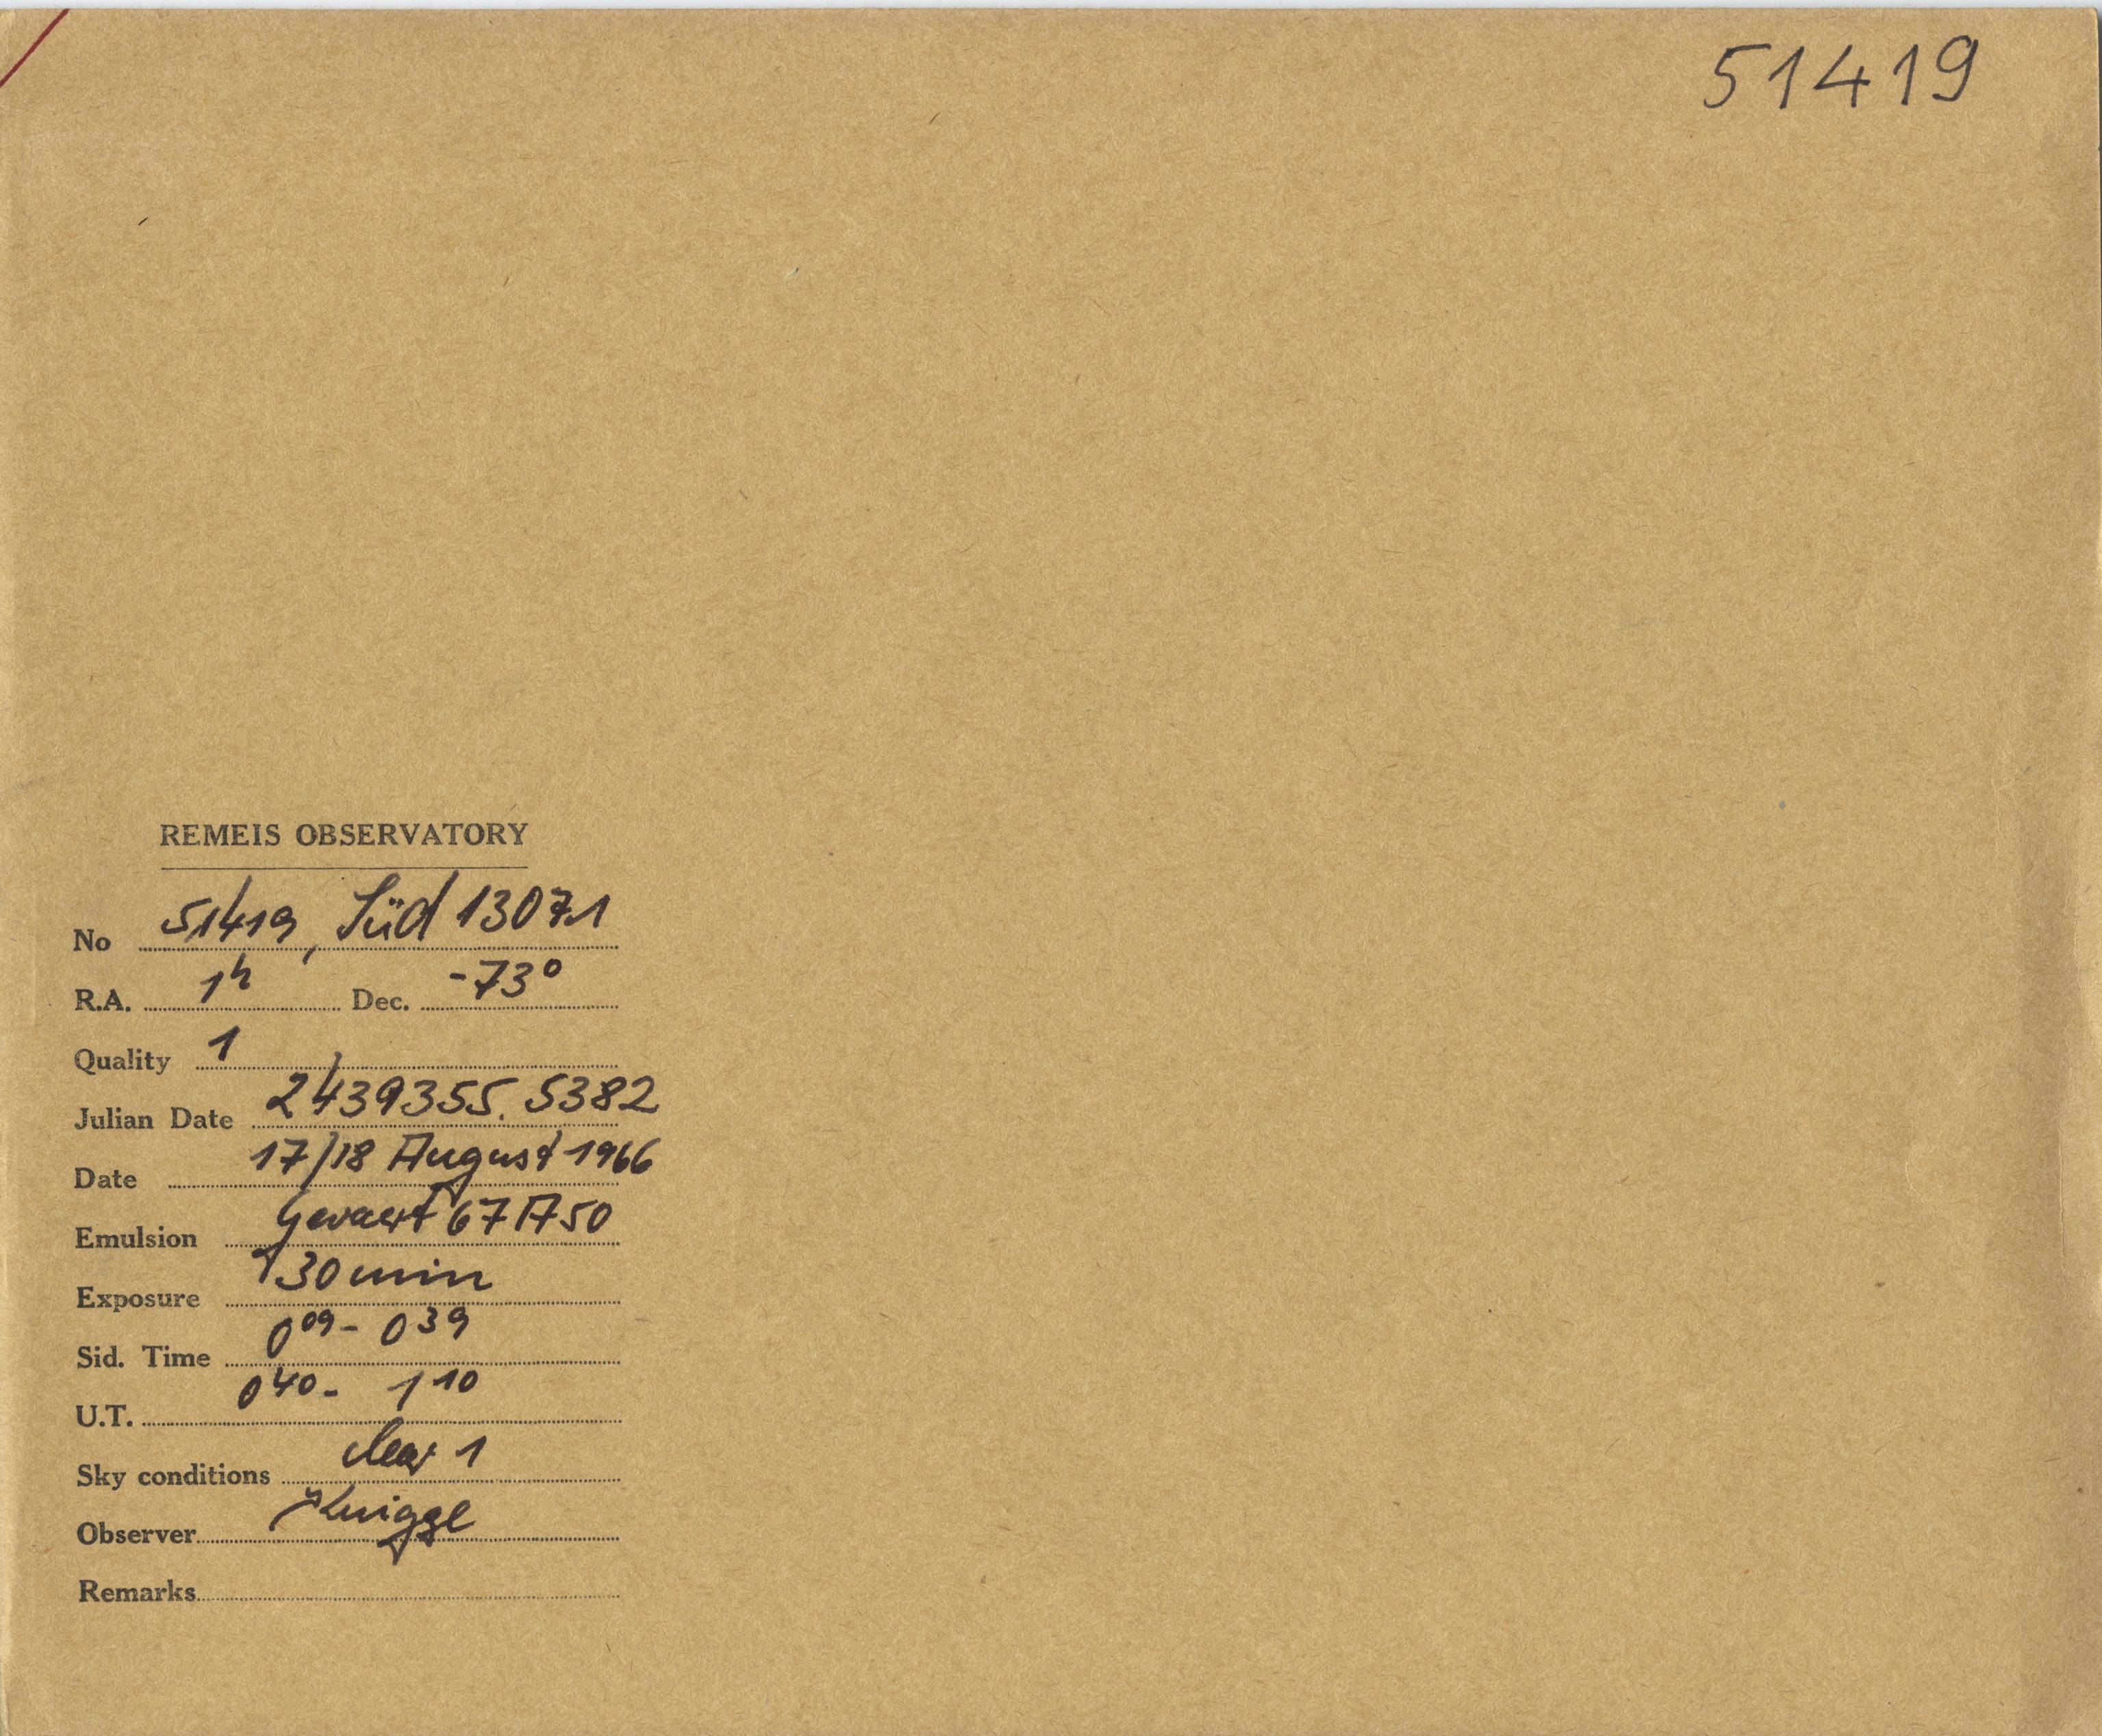 51419
REMEIS OBSERVATORY
No 51419, Süd 13071
R.A. 1h Dec. -73°
Quality 1
Julian Date 2439355.5382
Date 17/18 August 1966
Emulsion Gevaert 67A50
Exposure 30min
Sid. Time 0 09 - 0 39
U.T. 0 40 - 1 10
Sky conditions clear 1
Observer Knigge
Remarks